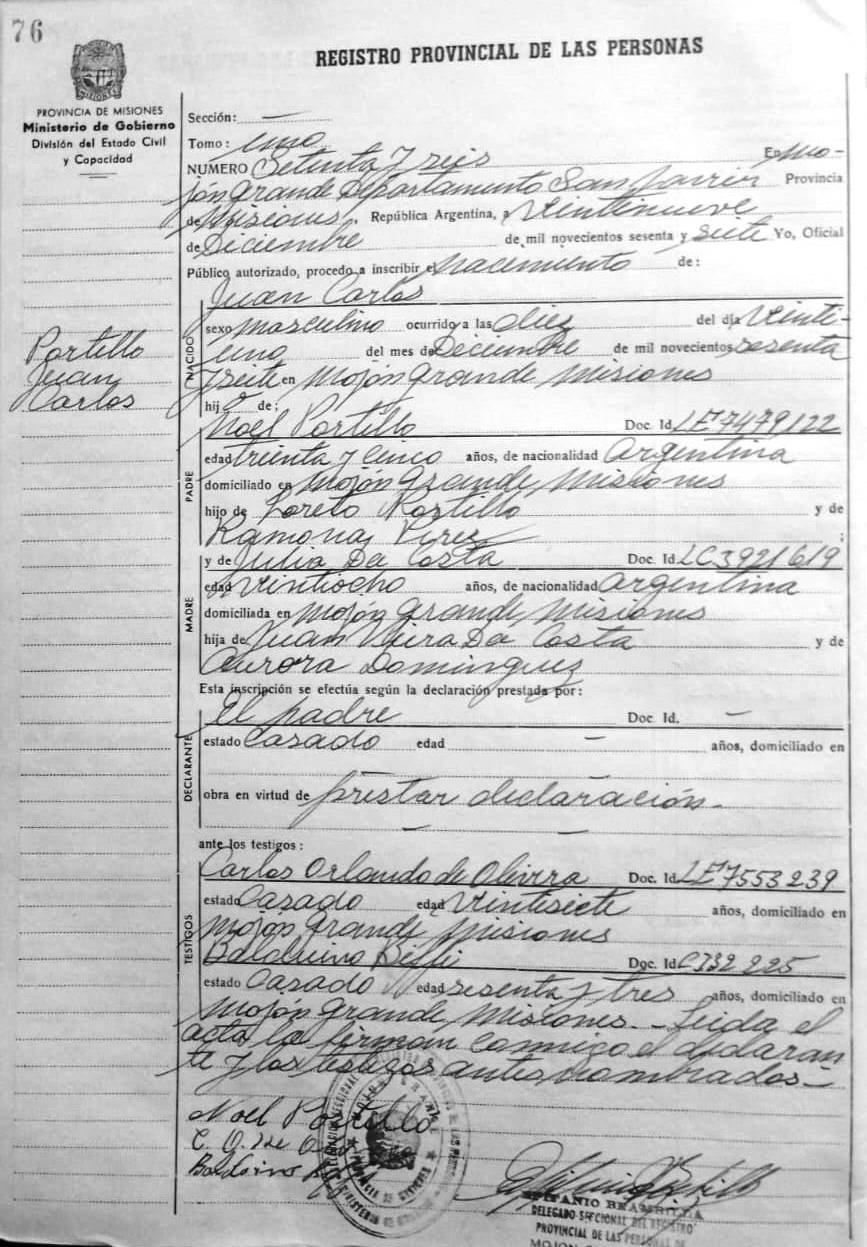 76
REGISTRO PROVINCIAL DE LAS PERSONAS
PROVINCIA DE MISIONES
Ministerio de Gobierno
División del Estado Civil
y Capacidad
Sección: —
Tomo: uno
NUMERO Setenta y seis En Mo-
jón Grande Departamento San Javier Provincia
de Misiones, República Argentina, a Veintinueve
de Diciembre de mil novecientos sesenta y Siete Yo, Oficial
Público autorizado, procedo a inscribir el nacimiento de:
Juan Carlos
sexo masculino ocurrido a las diez del día Veinti-
uno del mes de Diciembre de mil novecientos sesenta
y seite en Mojón Grande Misiones
hijo de;
NACIDO
Portillo
Juan
Carlos
Noel Portillo Doc. Id. LE 7479122
edad treinta y cinco años, de nacionalidad Argentina
domiciliado en Mojón Grande Misiones
hijo de Loreto Portillo y de
Ramona Pirez ;
PADRE
y de Julia Da Costa Doc. Id. LC3921619
edad veintiocho años, de nacionalidad argentina
domiciliada en Mojón Grande Misiones
hija de Juan Viera Da Costa y de
Aurora Dominguez
MADRE
Esta inscripción se efectúa según la declaración prestada por:
El padre Doc. Id. —
estado Casado edad — años, domiciliado en
obra en virtud de prestar declaración-
DECLARANTE
ante los testigos:
Carlos Orlando de Olivira Doc. Id. LE 7553239
estado Casado edad Vintisiete años, domiciliado en
Mojón Grande Misiones
Balduino Doc. Id. 225
estado Casado edad sesenta y tres años, domiciliado en
Mojón Grande Misiones.- Leida el
acta la firman conmigo el declaran
te y los testigos antes nombrados-
TESTIGOS
Noel Portillo
C. O. de
EPIFANIO BRAMBILLA
DELEGADO SECCIONAL DEL REGISTRO
PROVINCIAL DE LAS PERSONAS DE
MOJON